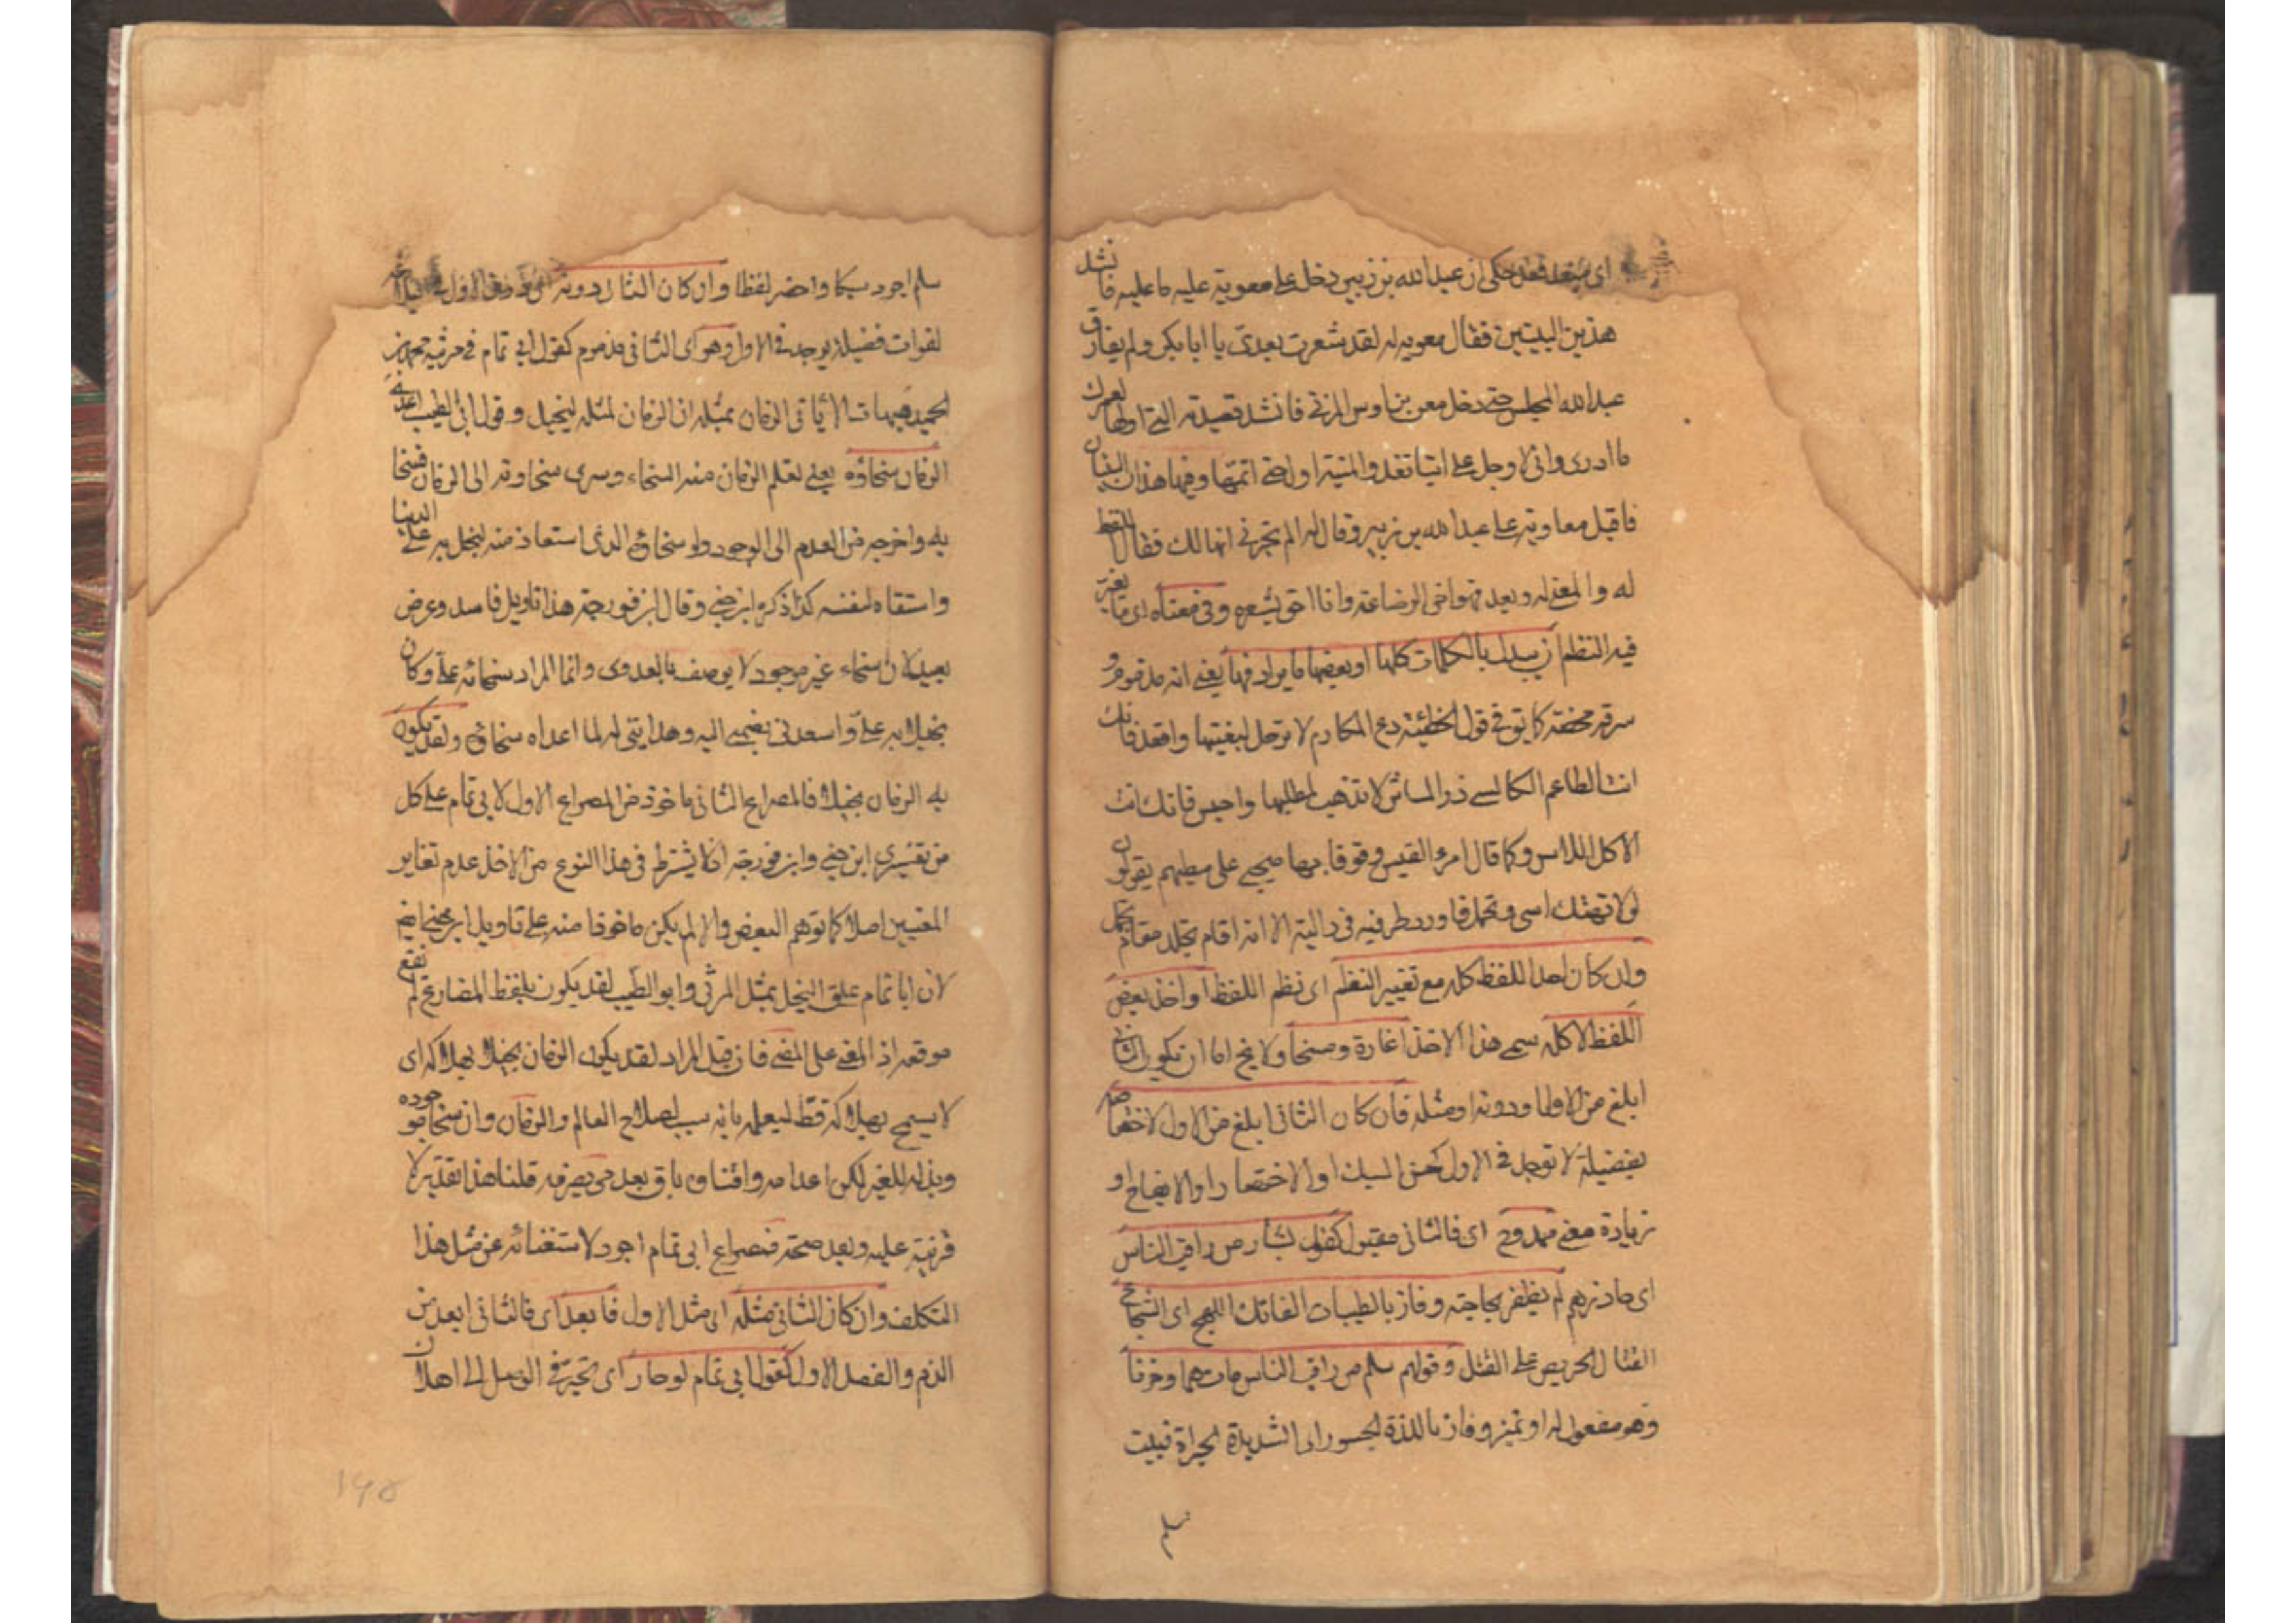 اى مبعد فقد حكى ان عبد الله بن زبير دخل على معوية عليه ما عليه فانشد
هذين البيتين فقال معوية له لقد شعرت بعدى يا ابا بكر ولم يفارق
عبد الله المجلس حتى دخل معن بن اوس المزنى فانشد قصيدته التى اولها لعمرك
ما ادرى وانى لاوجل على ايتنا تغدو المنية اول حتى اتمها وفيها هذان البيتان
فاقبل معاوية على عبد الله بن زبير وقال له الم تخبرنى انها لك فقال اللفظ
له والمعنى له وبعد فهو اخى من الرضاعة وانا احق بشعره وفى معناه اى ما لم يغير
فيه النظم ان يبدل بالكلمات كلها او بعضها ما يرادفها يعنى انه مذموم و
سرقة محضة كما يق فى قول الحطيئة دع المكارم لا ترحل لبغيتها واقعد فانك
انت الطاعم الكاسى ذر المآثر لا تذهب لمطلبها واجلس فانك انت
الآكل اللابس وكما قال امرء القيس وقوفا بها صحبى على مطيهم يقولون
لا تهلك اسى وتجمل فاورد طرفه فى داليته الا انه اقام تجلد مقام تجمل
وان كان اخذ اللفظ كله مع تغيير النظم اى نظم اللفظ او اخذ بعض
اللفظ لا كله سمى هذا الاخذ اغارة ومسخا ولا يخ اما ان يكون الثانى
ابلغ من الاول او دونه او مثله فان كان الثانى ابلغ من الاول لاختصاصه
بفضيلة لا توجد فى الاول كحسن السبك او الاختصار او الايضاح او
زيادة معنى فممدوح اى فالثانى مقبول كقول بشار من راقب الناس
اى حاذرهم لم يظفر بحاجته وفاز بالطيبات الفاتك اللهج اى الشجاع
القتال الحريص على القتل وقول سلم من راقب الناس مات هما وحزنا
وهو مفعول له او تميز وفاز باللذة الجسور اى الشديد الجراة فبيت
سلم
سلم اجود سبكا واخصر لفظا وان كان الثانى دونه اى دون الاول فى البلاغة
لفوات فضيلة توجد فى الاول وهو اى الثانى مذموم كقول ابى تمام فى مرثية محمد بن
حميد هيهات لا يأتى الزمان بمثله ان الزمان بمثله لبخيل وقول ابى الطيب اعدى
الزمان سخاؤه يعنى تعلم الزمان منه السخاء وسرى سخاوته الى الزمان فسخا
به واخرجه من العدم الى الوجود ولو سخاؤه الذى استفاد منه لبخل به على الدنيا
واستبقاه لنفسه كذا ذكره ابن جنى وقال ابن فورجة هذا تاويل فاسد وغرض
بعيد لان سخاء غير موجود لا يوصف بالعدوى وانما المراد سخا به على وكان
بخيلا به على واسعدنى بضمى اليه وهدايتى له لما اعداه سخاؤه ولقد يكون
به الزمان بخيلا فالمصراع الثانى ماخوذ من المصراع الاول لابى تمام على كل
من تفسيرى ابن جنى وابن فورجة اذ لا يشترط فى هذا النوع من الاخذ عدم تغاير
المعنيين اصلا كما توهم البعض والا لم يكن ماخوذا منه على تاويل ابن جنى ايضا
لان ابا تمام علق البخل بمثل المرثى وابو الطيب لقد يكون بلفظ المضارع لم تقع
موقعه اذ المعنى على المضى فان قيل المراد لقد يكون الزمان بخيلا بهلاكه اى
لا يسمح بهلاكه قط لعلمه بانه سبب لصلاح العالم والزمان وان سخا بوجوده
وبذله للغير لكن اعدامه وافناؤه باق بعد فى تصرفه قلنا هذا تقدير لا
قرينة عليه وبعد صحته فمصراع ابى تمام اجود لاستغنائه عن مثل هذا
التكلف وان كان الثانى مثله اى مثل الاول فابعد اى فالثانى ابعد من
الذم والفضل للاول كقول ابى تمام لو حار اى تحير فى التوصل الى اهلاك